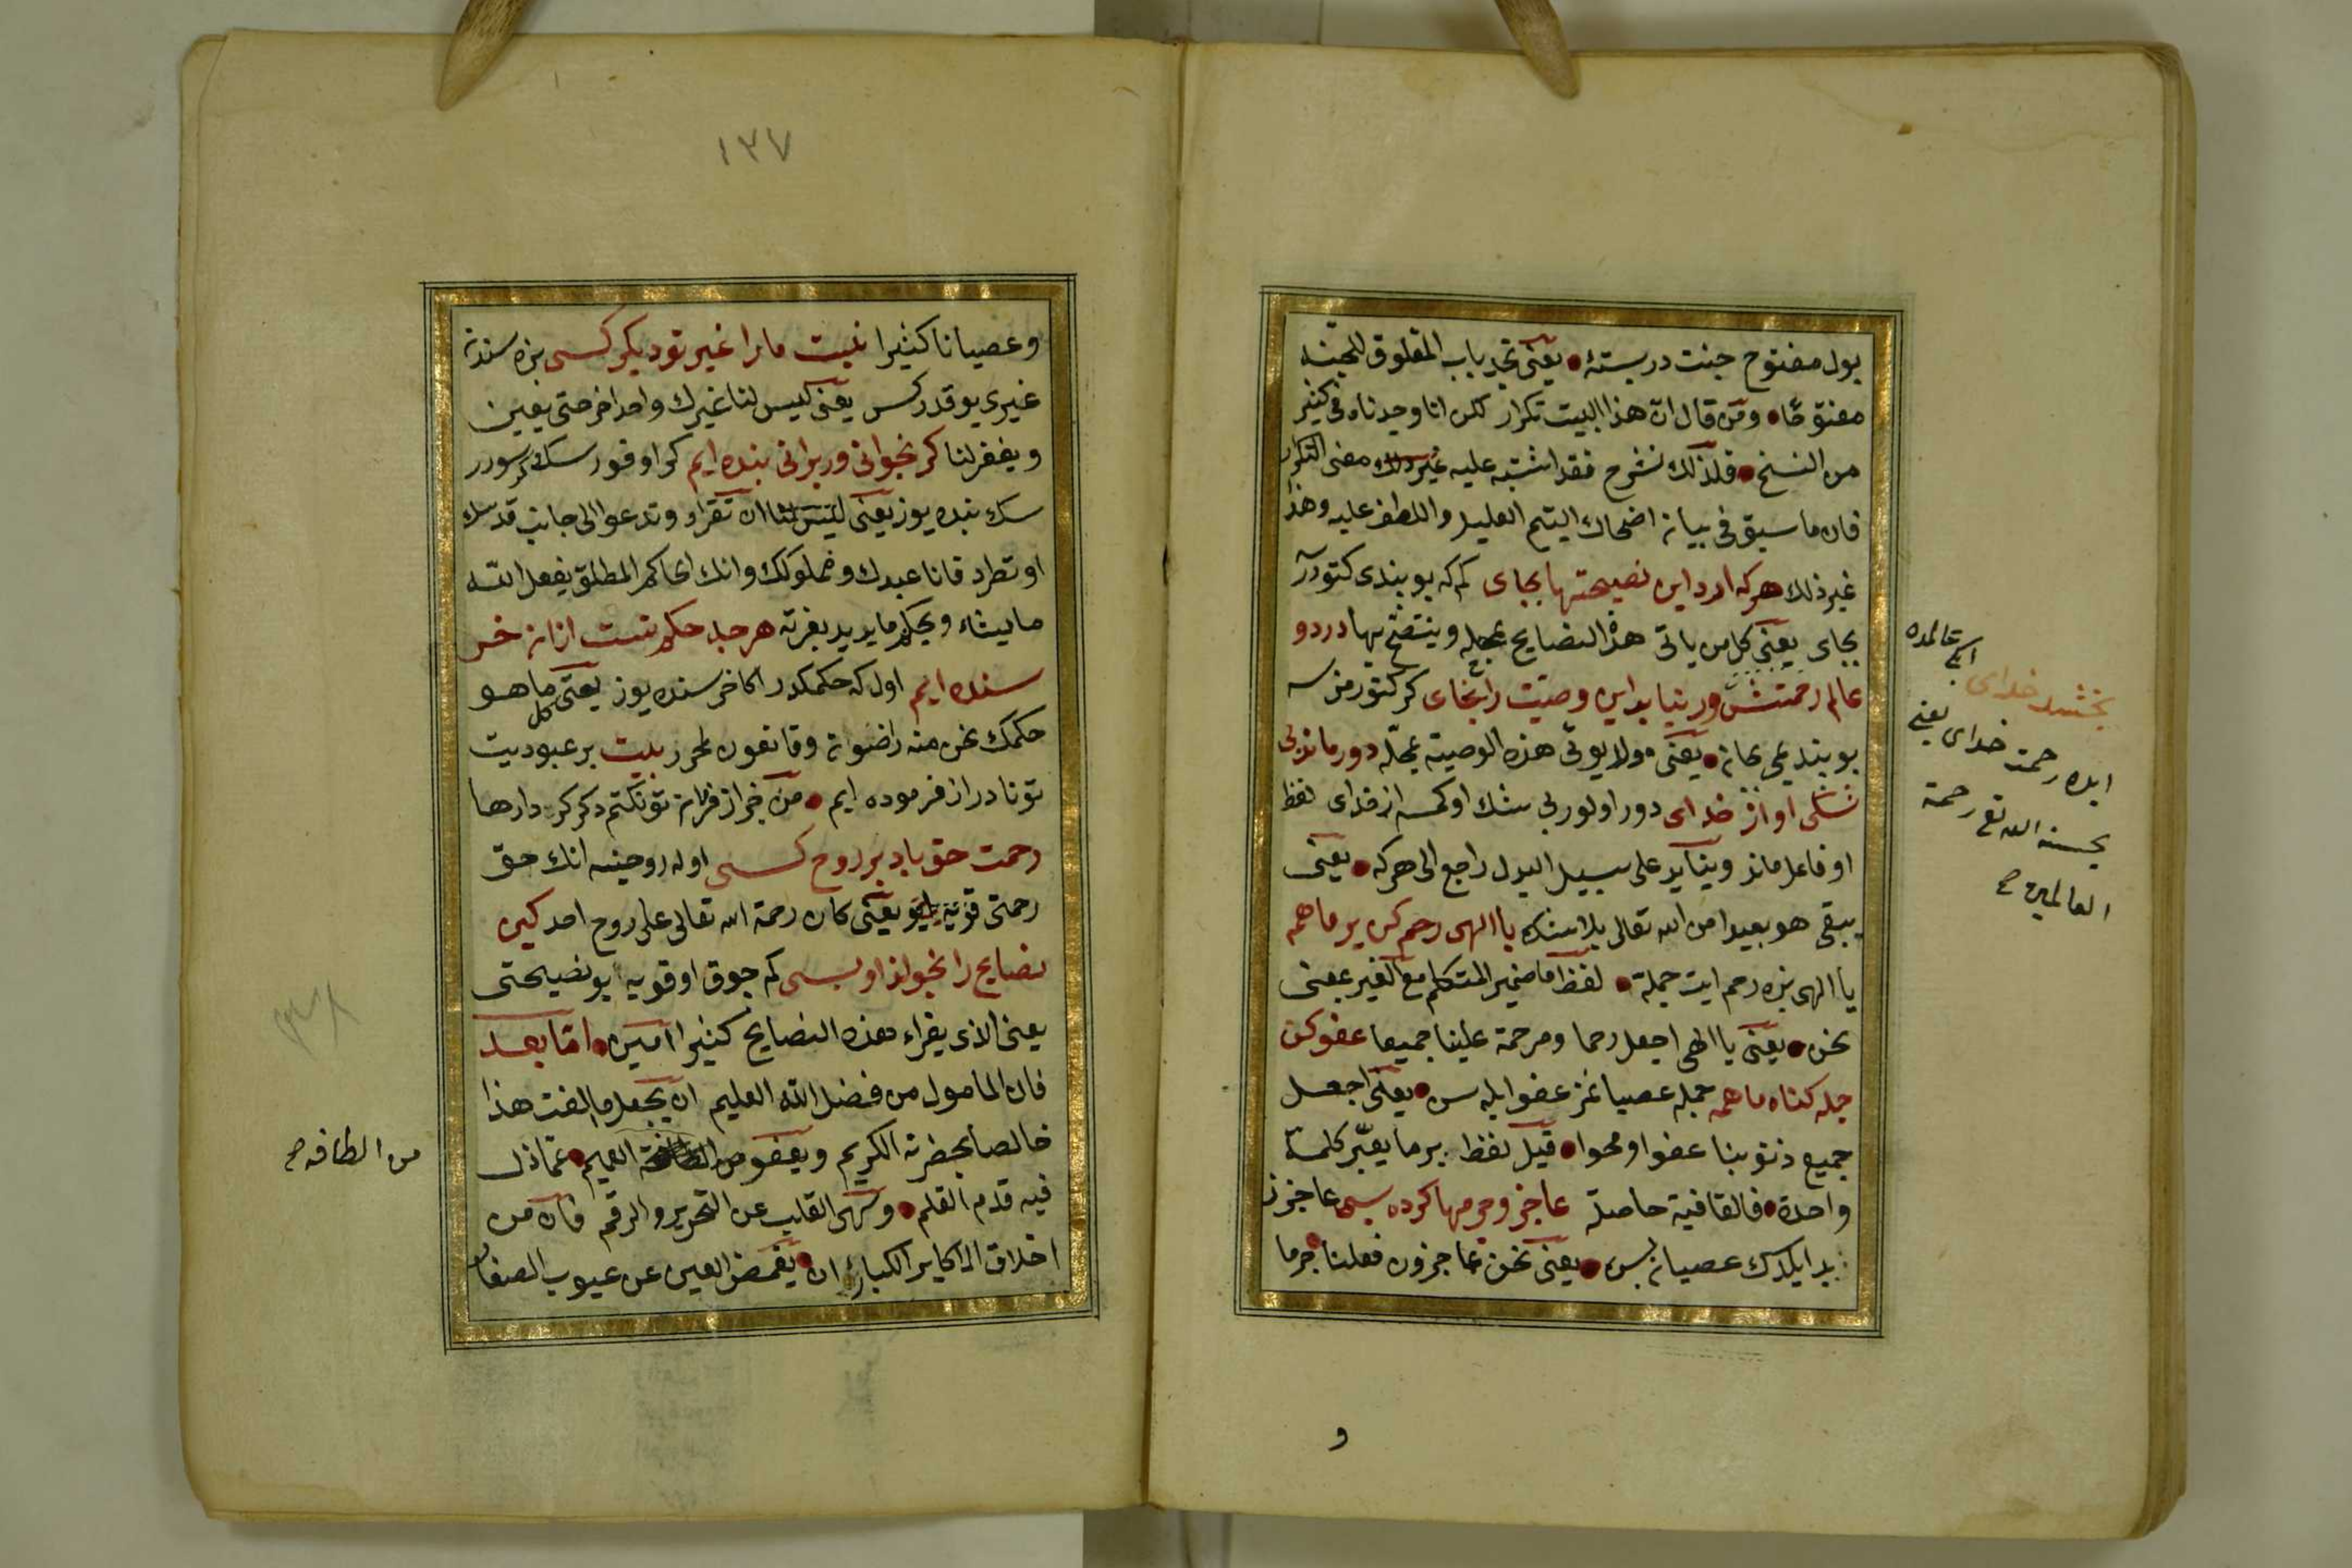 بولد مفتوح جنت در بسته يعنى تجد باب المغلوق للجنة
مفتوحا ومن قال ان هذا البيت تكرار لكن انا وجدناه فى كثير
من النسخ فلذلك نشرح فقد اشتبه عليه غير ذلك معنى التكرار
فان ما سبق فى بيانه اضحاك اليتيم العليل واللطف عليه وهذا
غير ذلك هركه ارد اين نصيحتها بجاى كم كه بو بندى كتورر
بجاى يعنى كل من ياتى هذه النصايح بمحله وينتصح بها در دو
عالم رحمتش ور نيايد اين وصيت را بجاى كر كتورمزسه
بو بندى يعنى ولا يوتى هذه الوصية بمحله دور ماند بى
شكى او از خداى دور اولور بى شك او كمسه از خداى لفظ
او فاعل ماند ونيايد على سبيل البدل راجع الى هركه يعنى
يبقى هو بعيدا من الله تعالى بلا شك يا الهى رحم كن بر ما همه
يا الهى بزه رحم ايت جمله لفظ ما ضمير المتكلم مع الغير بمعنى
نحن يعنى يا الهى اجعل رحما ومرحمة علينا جميعا عفو كن
جمله كناه ما همه جمله عصيانمز عفو ايله سن يعنى اجعل
جميع ذنوبنا عفوا ومحوا قيل لفظ بر ما يعبر كلمة
واحدة فالقافية حاصلة عاجز وجرمها كرده بسى عاجزز
بز ايلدك عصيان بس يعنى نحن عاجزون فعلنا جرما
عالمده
بخشد خداى
ايده رحمت خداى يعنى
يحسنه الله تع رحمة
العالمين صح
و
١٣٧
وعصيانا كثيرا نيست ما را غير تو ديكر كسى بزه سندن
غيرى يوقدر كس يعنى ليس لنا غيرك واحد اخر حتى يعين
ويغفر لنا كر بخوانى ور برانى بنده ايم كر اوقور سك كر سورر
سك بنده يوز يعنى ان تقراو وتدعوا الى جانب قدسك
او تطرد فانا عبدك ومملوكك وانك الحاكم المطلق يفعل الله
ما يشاء ويحكم ما يريد بعزته هرچه حكم تست از ان خر
سنده ايم اول كه حكمكدر اكا خرسنده يوز يعنى كل ما هو
حكمك نحن منه راضوان وقانعون بيت بر عبوديت
تو نا در از فرموده ايم من جز از تو نكتم دكر كردارها
رحمت حق باد بر روح كسى اوله روحينه انك حق
رحمتى يعنى كان رحمة الله تعالى على روح احد كين
نصايح را بخواند او بسى كم چوق اوقويه بو نصيحتى
يعنى الذى يقراء هذه النصايح كثيرا امين اما بعد
فان المامول من فضل الله العليم ان يجعل ما الفت هذا
خالصا بحضرته الكريم ويعفو من العميم عما ذل
فيه قدم القلم وسهى القلب عن التحرير والرقم فان من
اخلاق الاكابر الكبار ان يغمض العين عن عيوب الصغار
من الطافه صح